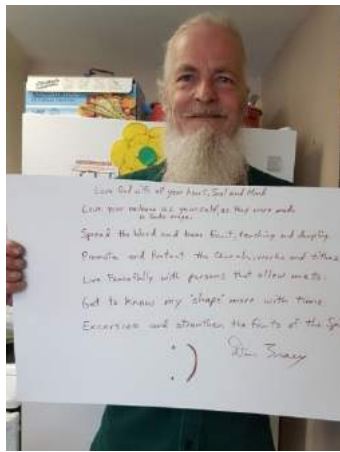 Love God with all your heart, Soul and Mind
Love your neibour as yourself, as they were made
in Gods image.
Spread the Word and bear fruit, teaching and discipling
Promote and Protect the Church, works and tithes
Live Peacefully with persons that allow me to.
Get to know my 'shape' more with time
Excersise and strengthen the fruits of the Sp
:)